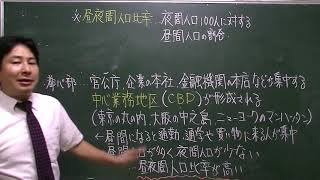 ※昼夜間人口比率 夜間人口100人に対する
昼間人口の割合
都心部… 官公庁、企業の本社、金融機関の本店などが集中する
中心業務地区(CBD)が形成される
(東京の丸の内、大阪の中之島、ニューヨークのマンハッタン)
←昼間になると通勤、通学や買い物に来る人が集中
昼間人口が多く夜間人口が少ない
昼夜間人口比率が高い